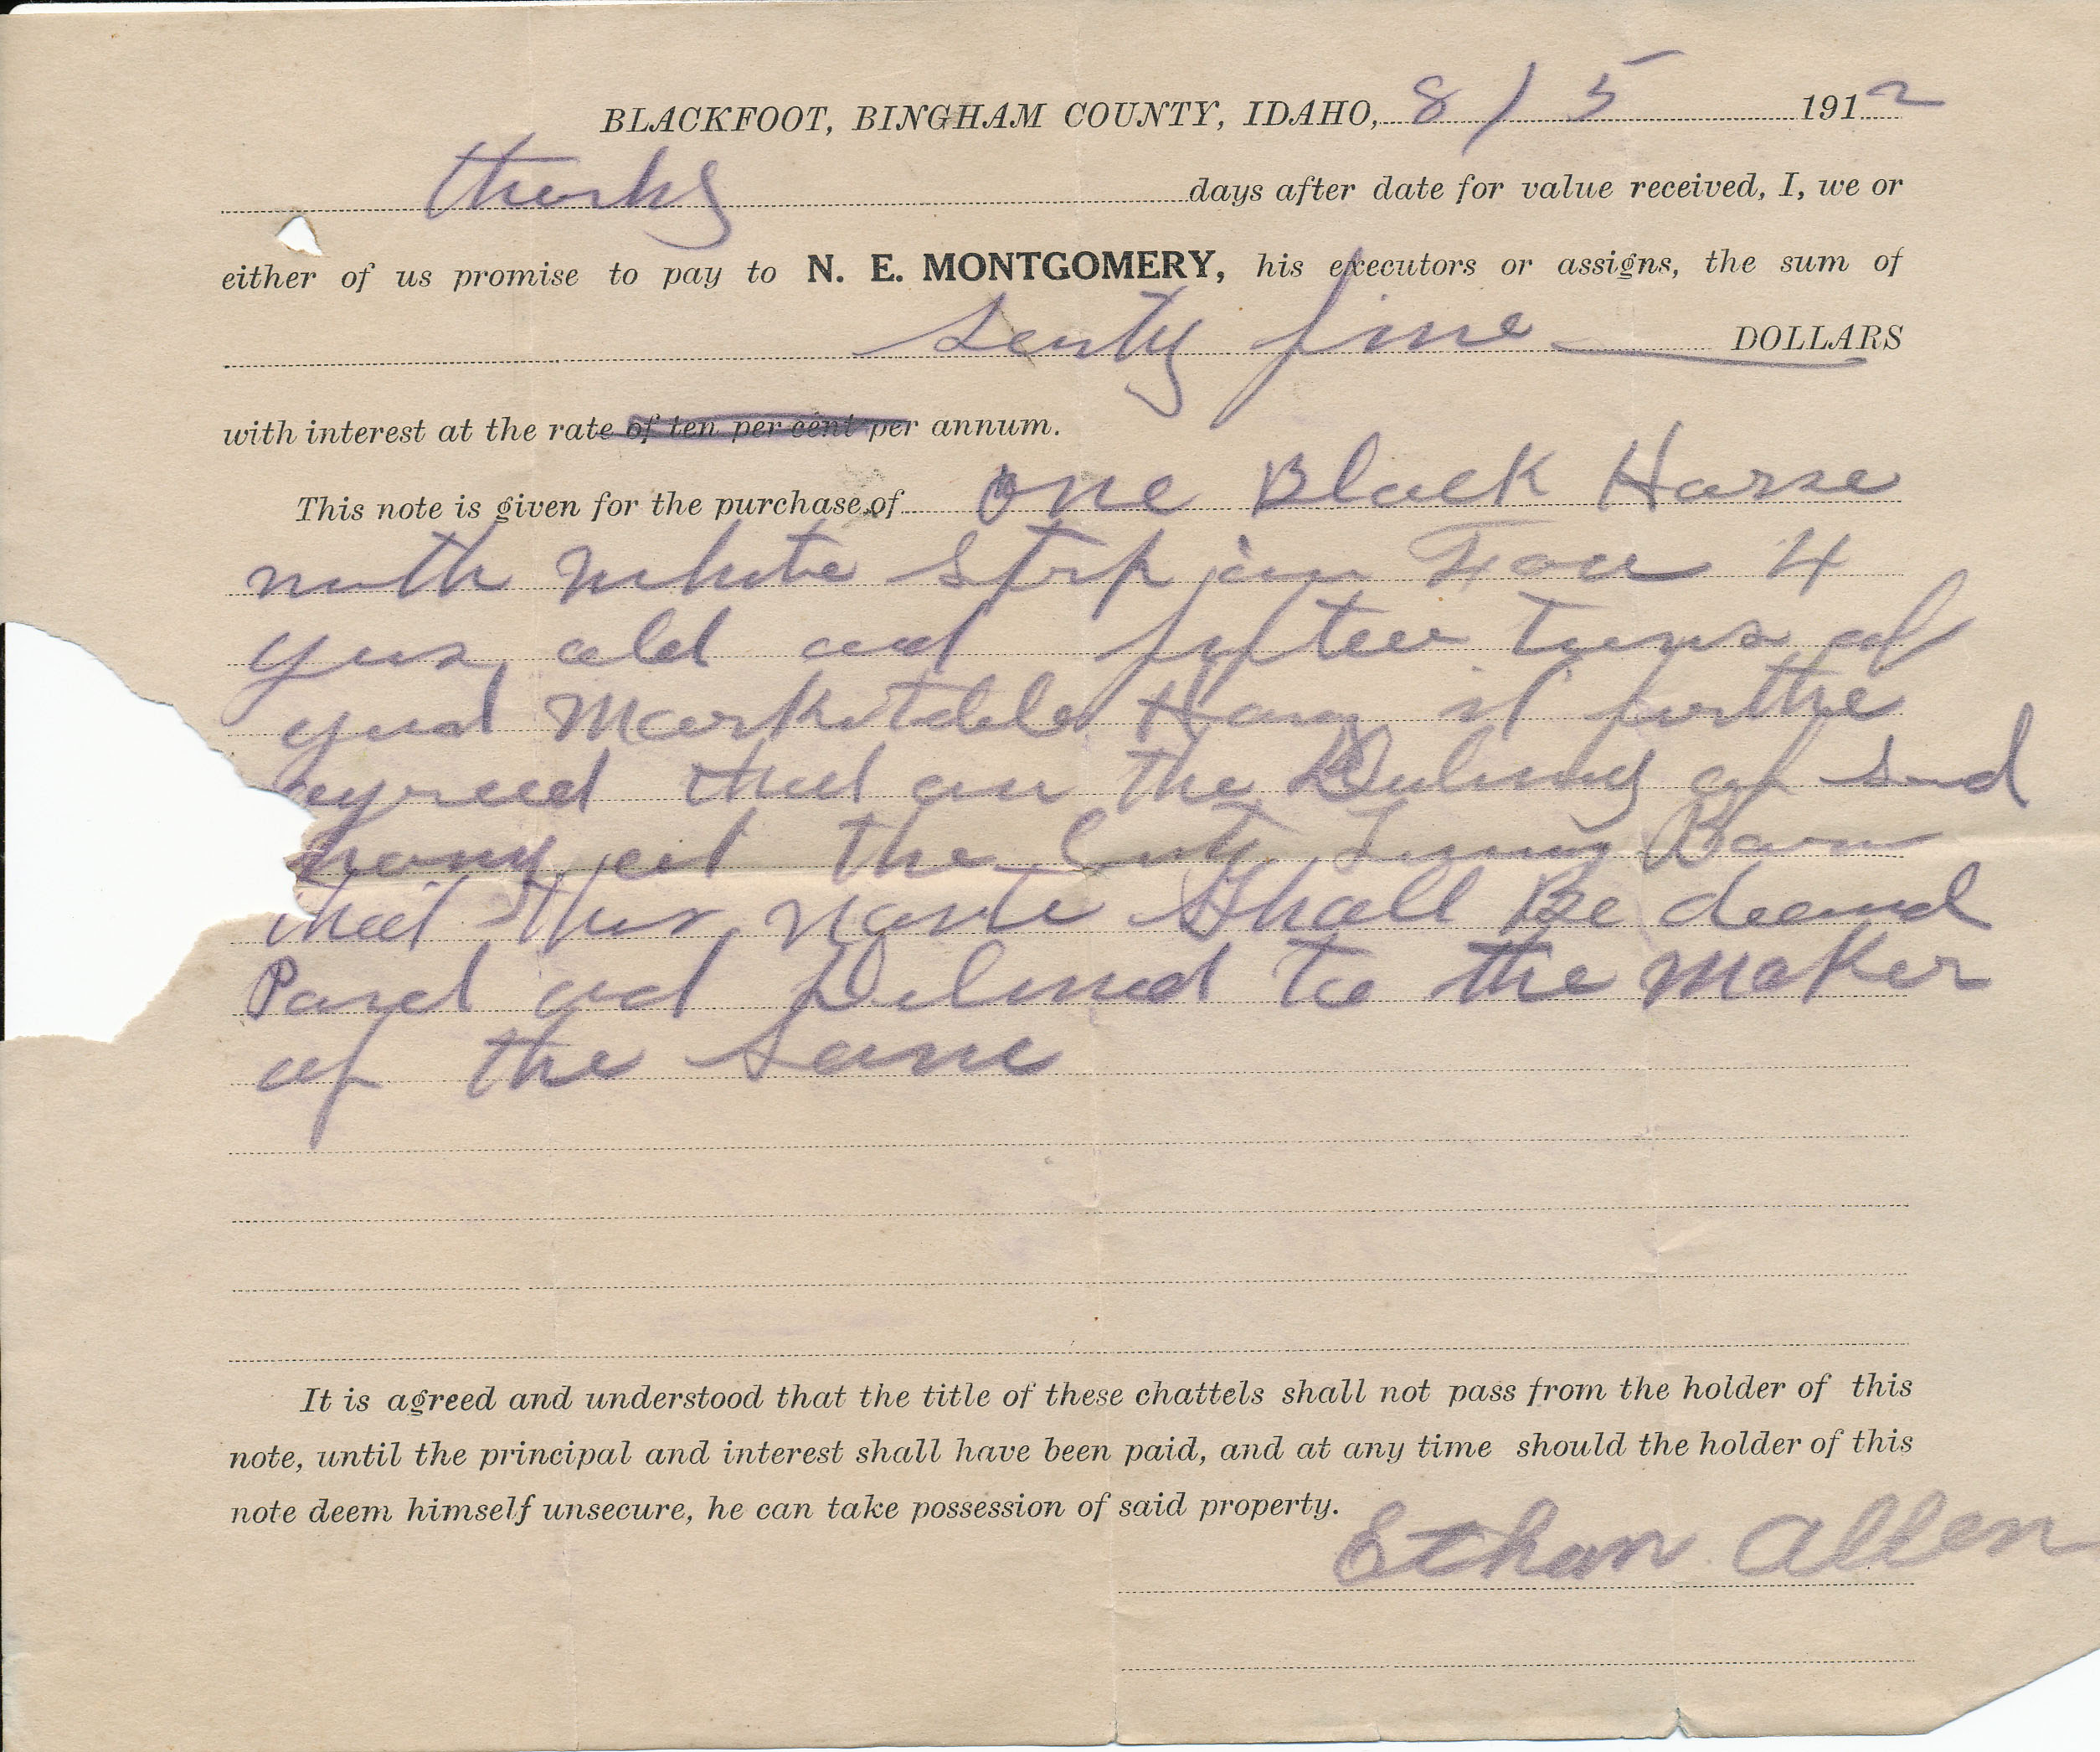 BLACKFOOT, BINGHAM COUNTY, IDAHO, 8/5 1912
days after date for value received, I, we or
either of us promise to pay to N. E. MONTGOMERY, his executors or assigns, the sum of
DOLLARS
with interest at the rate of ten per cent per annum.
This note is given for the purchase of one Black Horse
with white strip in Face 4
yers old and
Hay it further
agreed that on the of sad
hay at the City Livery Barn
that this note Shall Be deemed
Paid and to the Maker
of the Same
It is agreed and understood that the title of these chattels shall not pass from the holder of this
note, until the principal and interest shall have been paid, and at any time should the holder of this
note deem himself unsecure, he can take possession of said property.
Ethan Allen